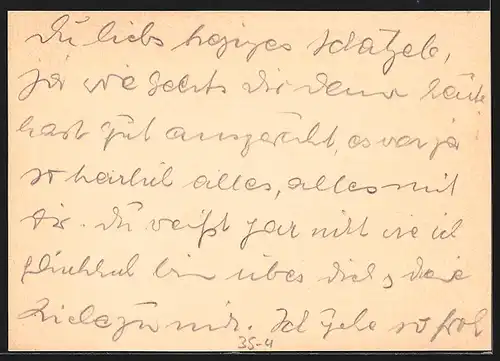 Du liebs herziges Schatzele,
ja wie gehts dir denn heute
hast gut ausgeruht, es war ja
so herrlich alles, alles mit
dir. Du weißt gar nicht wie ich
glücklich bin über dich, deine
Liebe zu mir. Ich gehe so froh
35-4